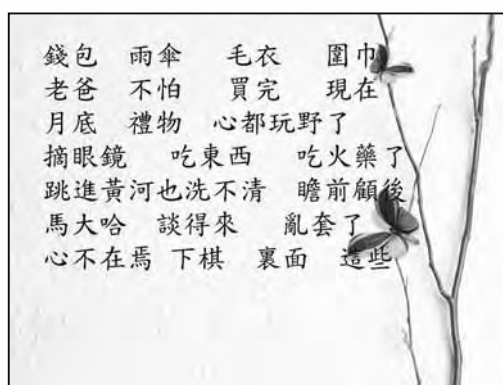 錢包 雨傘 毛衣 圍巾
老爸 不怕 買完 現在
月底 禮物 心都玩野了
摘眼鏡 吃東西 吃火藥了
跳進黃河也洗不清 瞻前顧後
馬大哈 談得來 亂套了
心不在焉 下棋 裏面 這些